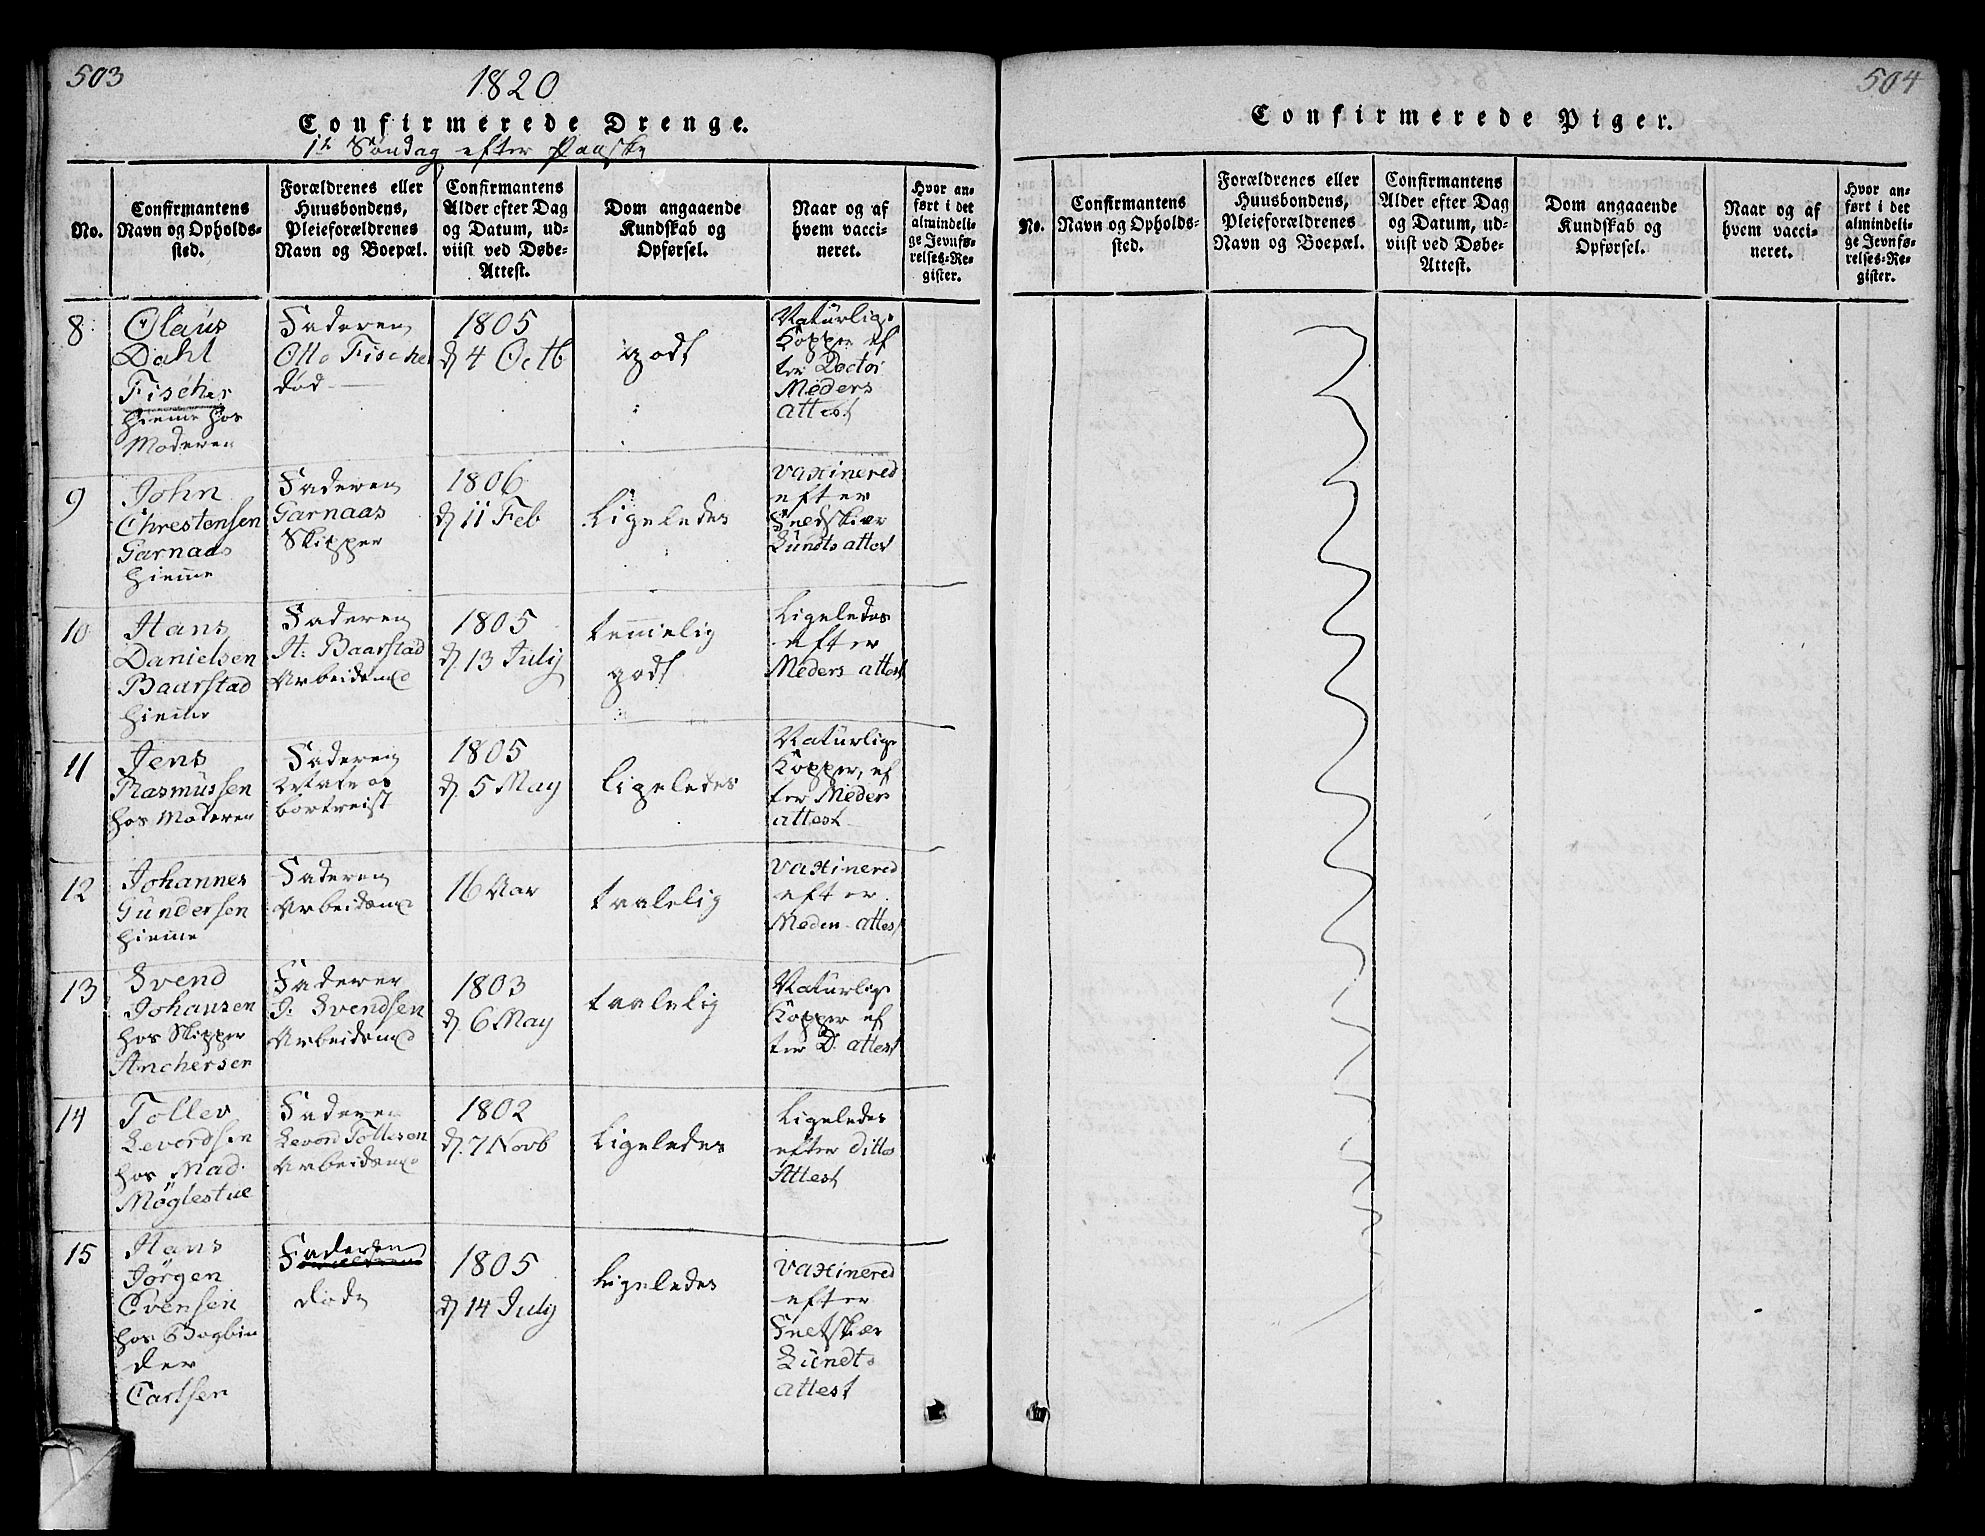 503
1820
Confirmerede Drenge.
1te Søndag efter Paaske
No.
Confirmantens
Navn og Opholds-
sted.
Forældrenes eller
Huusbondens,
Pleieforældrenes
Navn og Boepæl.
Confirmantens
Alder efter Dag
og Datum, ud-
viist ved Døbe-
Attest.
Dom angaaende
Kundskab og
Opførsel.
Naar og af
hvem vacci-
neret.
Hvor an-
ført i det
almindeli-
ge Jevnfø-
relses-Re-
gister.
8
Olaus
Dahl
Fischer
hieme hos
Moderen
Faderen
Otto Fischer
død
1805
d 4 Octb
godt
Naturlige
Kopper ef
ter Doctor
Meders
attest
9
John
Chrestensen
Garnaas
hieme
Faderen
Garnaas
Skipper
1806
d 11 Feb
Ligeledes
Vaxinered
efter
Lundts attest
10
Hans
Danielsen
Baarstad
hieme
Faderen
H: Baarstad
Arbeidsmd
1805
d. 13 July
temelig
godt
Ligeledes
efter
Meders attest
11
Jens
Rasmussen
hos Moderen
Faderen
bortreist
1805
d. 5 May
ligeledes
Naturlige
Kopper, ef
ter Meders
attest
12
Johannes
Gundersen
hieme
Faderen
Arbeidsmd
16 Aar
taalelig
Vaxinered
efter
Meders attest
13
Svend
Johansen
hos Skipper
Anchersen
Faderen
J. Svendsen
Arbeidsmd
1803
d. 6 May
taalelig
Naturlige
Kopper ef
ter D. attest
14
Tollev
Levordsen
hos Mad.
Møglestue
Faderen
Levord Tollesen
Arbeidsmd
1802
d. 7 Novb
Ligeledes
Ligeledes
efter ditto
Attest
15
Hans
Jørgen
Evensen
hos Bogbin
der
Carlsen
Faderen
døde
1805
d 14 July
Ligeledes
Vaxinered
efter
Lundts
attest
504
Confirmerede Piger.
No.
Confirmantens
Navn og Opholds-
sted.
Forældrenes eller
Huusbondens,
Pleieforældrenes
Navn og Boepæl.
Confirmantens
Alder efter Dag
og Datum, ud-
viist ved Døbe-
Attest.
Dom angaaende
Kundskab og
Opførsel.
Naar og af
hvem vacci-
neret.
Hvor an-
ført i det
almindeli-
ge Jevnfø-
relses-Re-
gister.